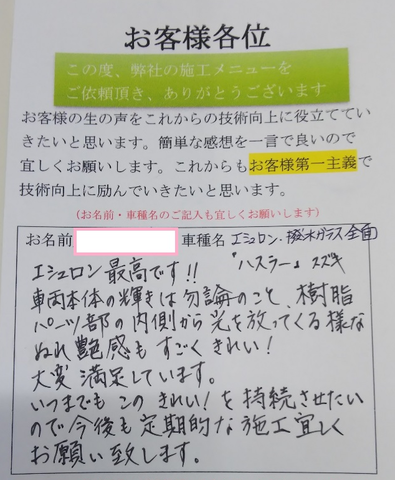 お客様各位
この度、弊社の施工メニューを
ご依頼頂き、ありがとうございます
お客様の生の声をこれからの技術向上に役立ててい
きたいと思います。簡単な感想を一言で良いので
宜しくお願いします。これからもお客様第一主義で
技術向上に励んでいきたいと思います。
(お名前・車種名のご記入も宜しくお願いします)
お名前 車種名 エシュロン・撥水ガラス全面
エシュロン最高です!! 「ハスラー」スズキ
車両本体の輝きは勿論のこと、樹脂
パーツ部の内側から光を放ってくる様な
ぬれ艶感もすごくきれい!
大変満足しています。
いつまでもこのきれい!を持続させたい
ので今後も定期的な施工宜しく
お願い致します。